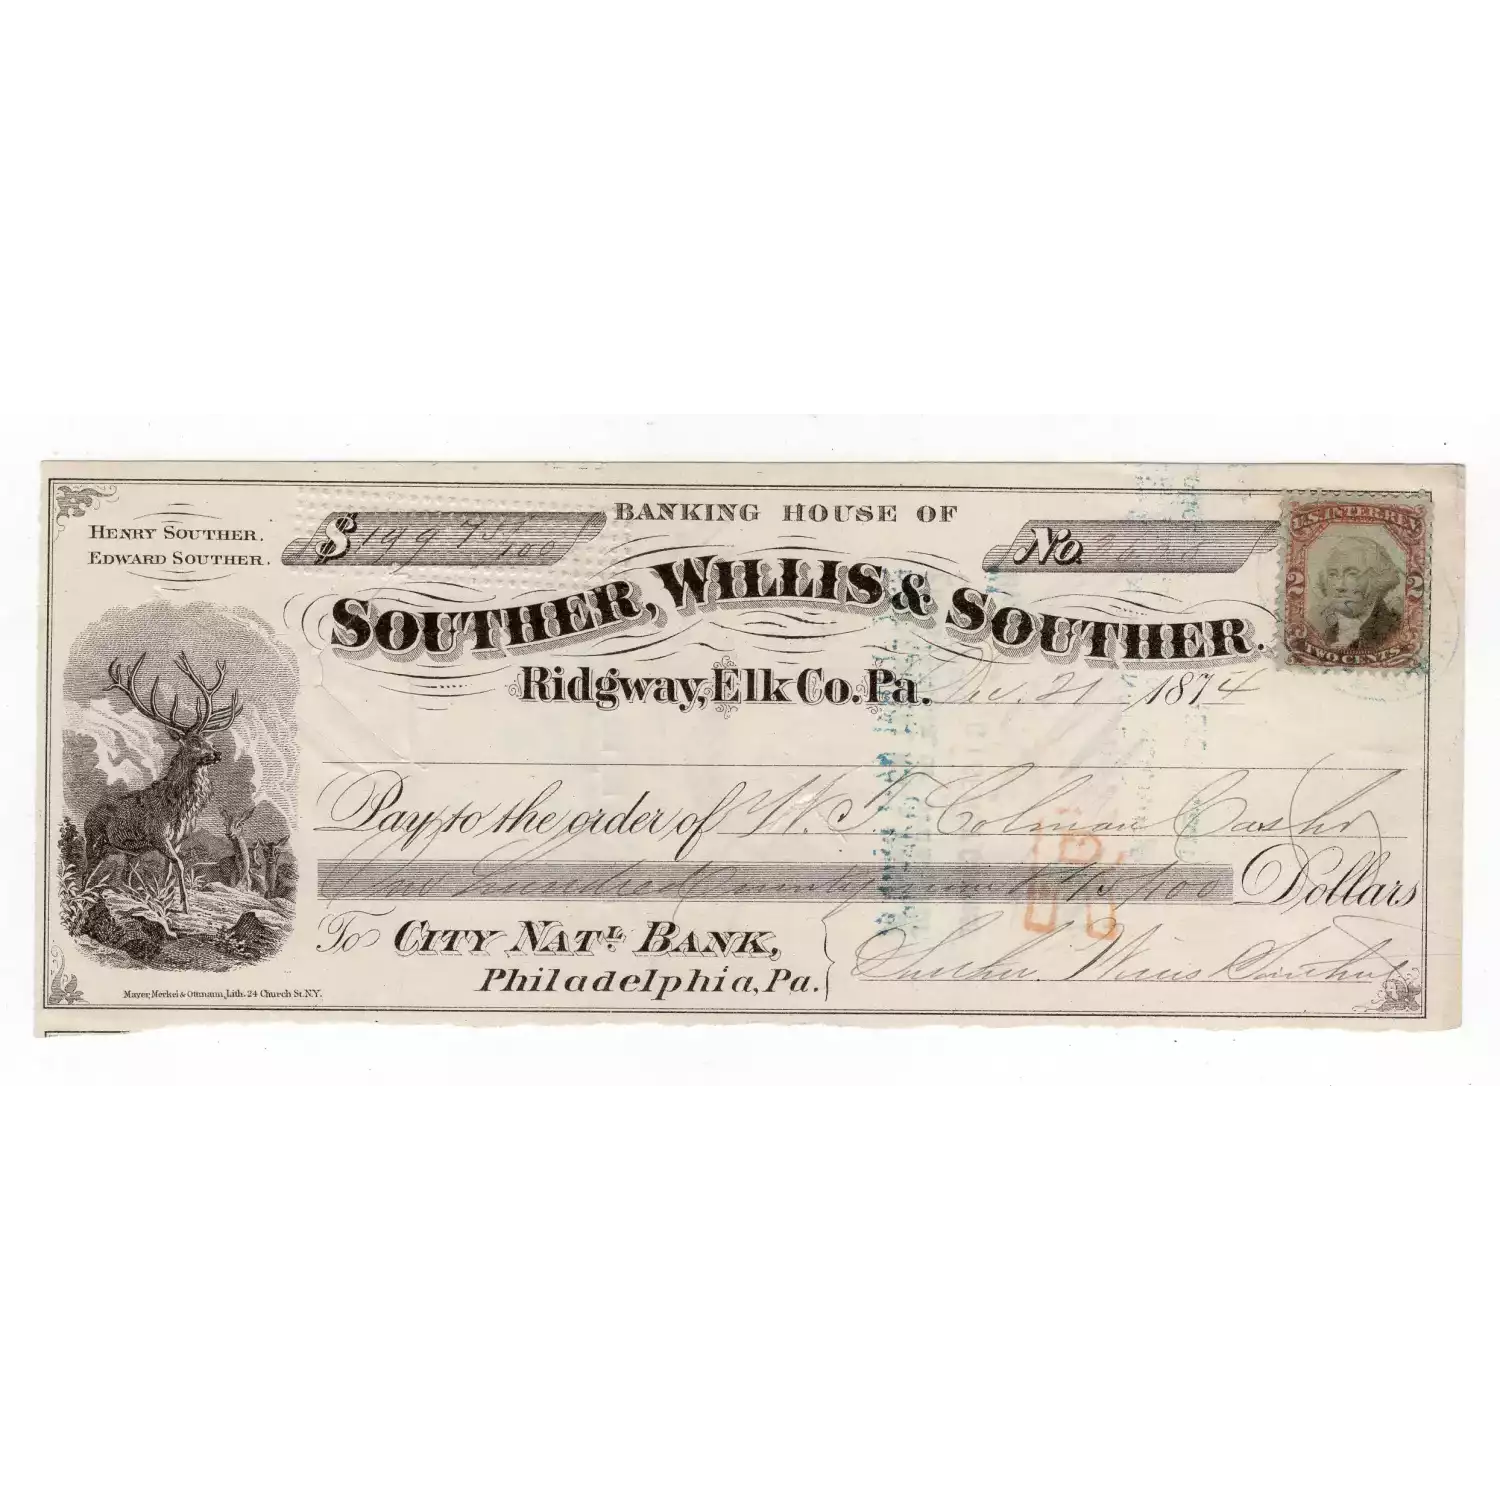 HENRY SOUTHER.
EDWARD SOUTHER.
$ 199 75/100
BANKING HOUSE OF
No.
SOUTHER, WILLIS & SOUTHER.
Ridgway, Elk Co. Pa. Dec. 21 1874
U.S. INTER. REV.
2 2
TWO CENTS
Pay to the order of W. T. Colman Cashr
One hundred ninety nine & 75/100 Dollars
To CITY NATL. BANK,
Philadelphia, Pa.
Souther, Willis & Souther
Mayer, Merkel & Ottmann, Lith. 24 Church St. N.Y.